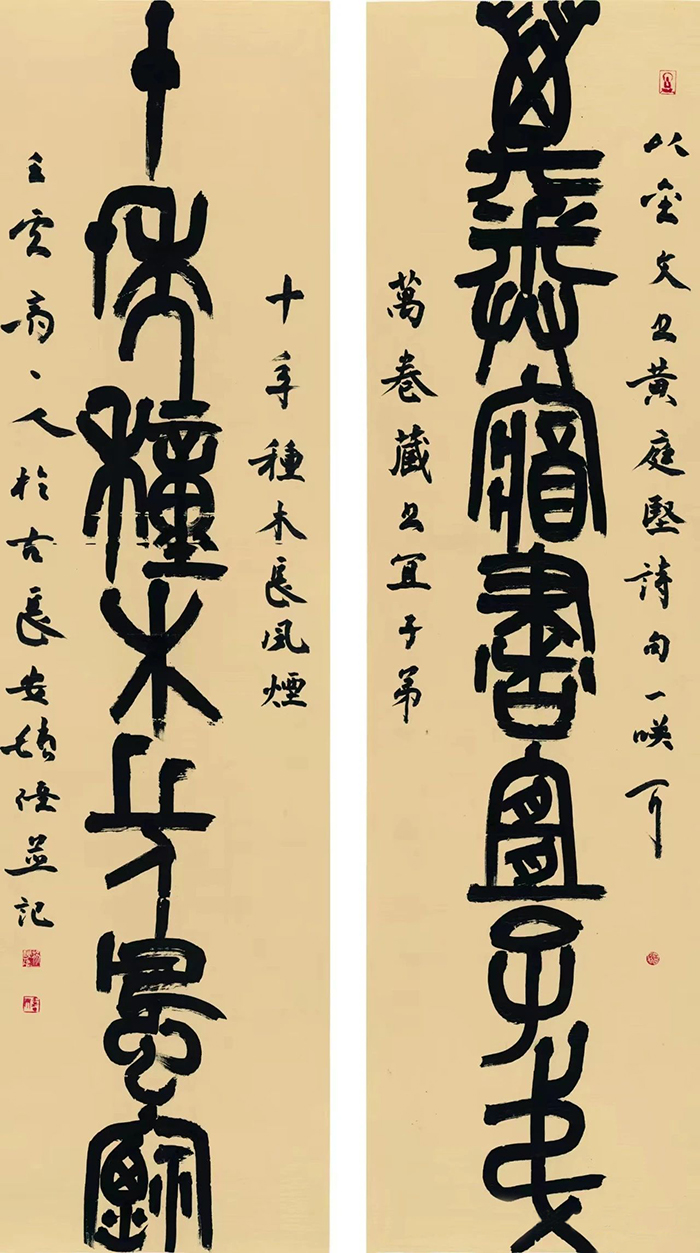 以金文书黃庭堅詩句一咲
萬卷藏書宜子弟
萬卷藏书宜子弟
十年種木長風煙
十年種木長風煙
人於古長安並記